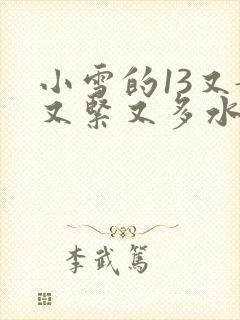 小雪的13又
又緊又多水
李武篤